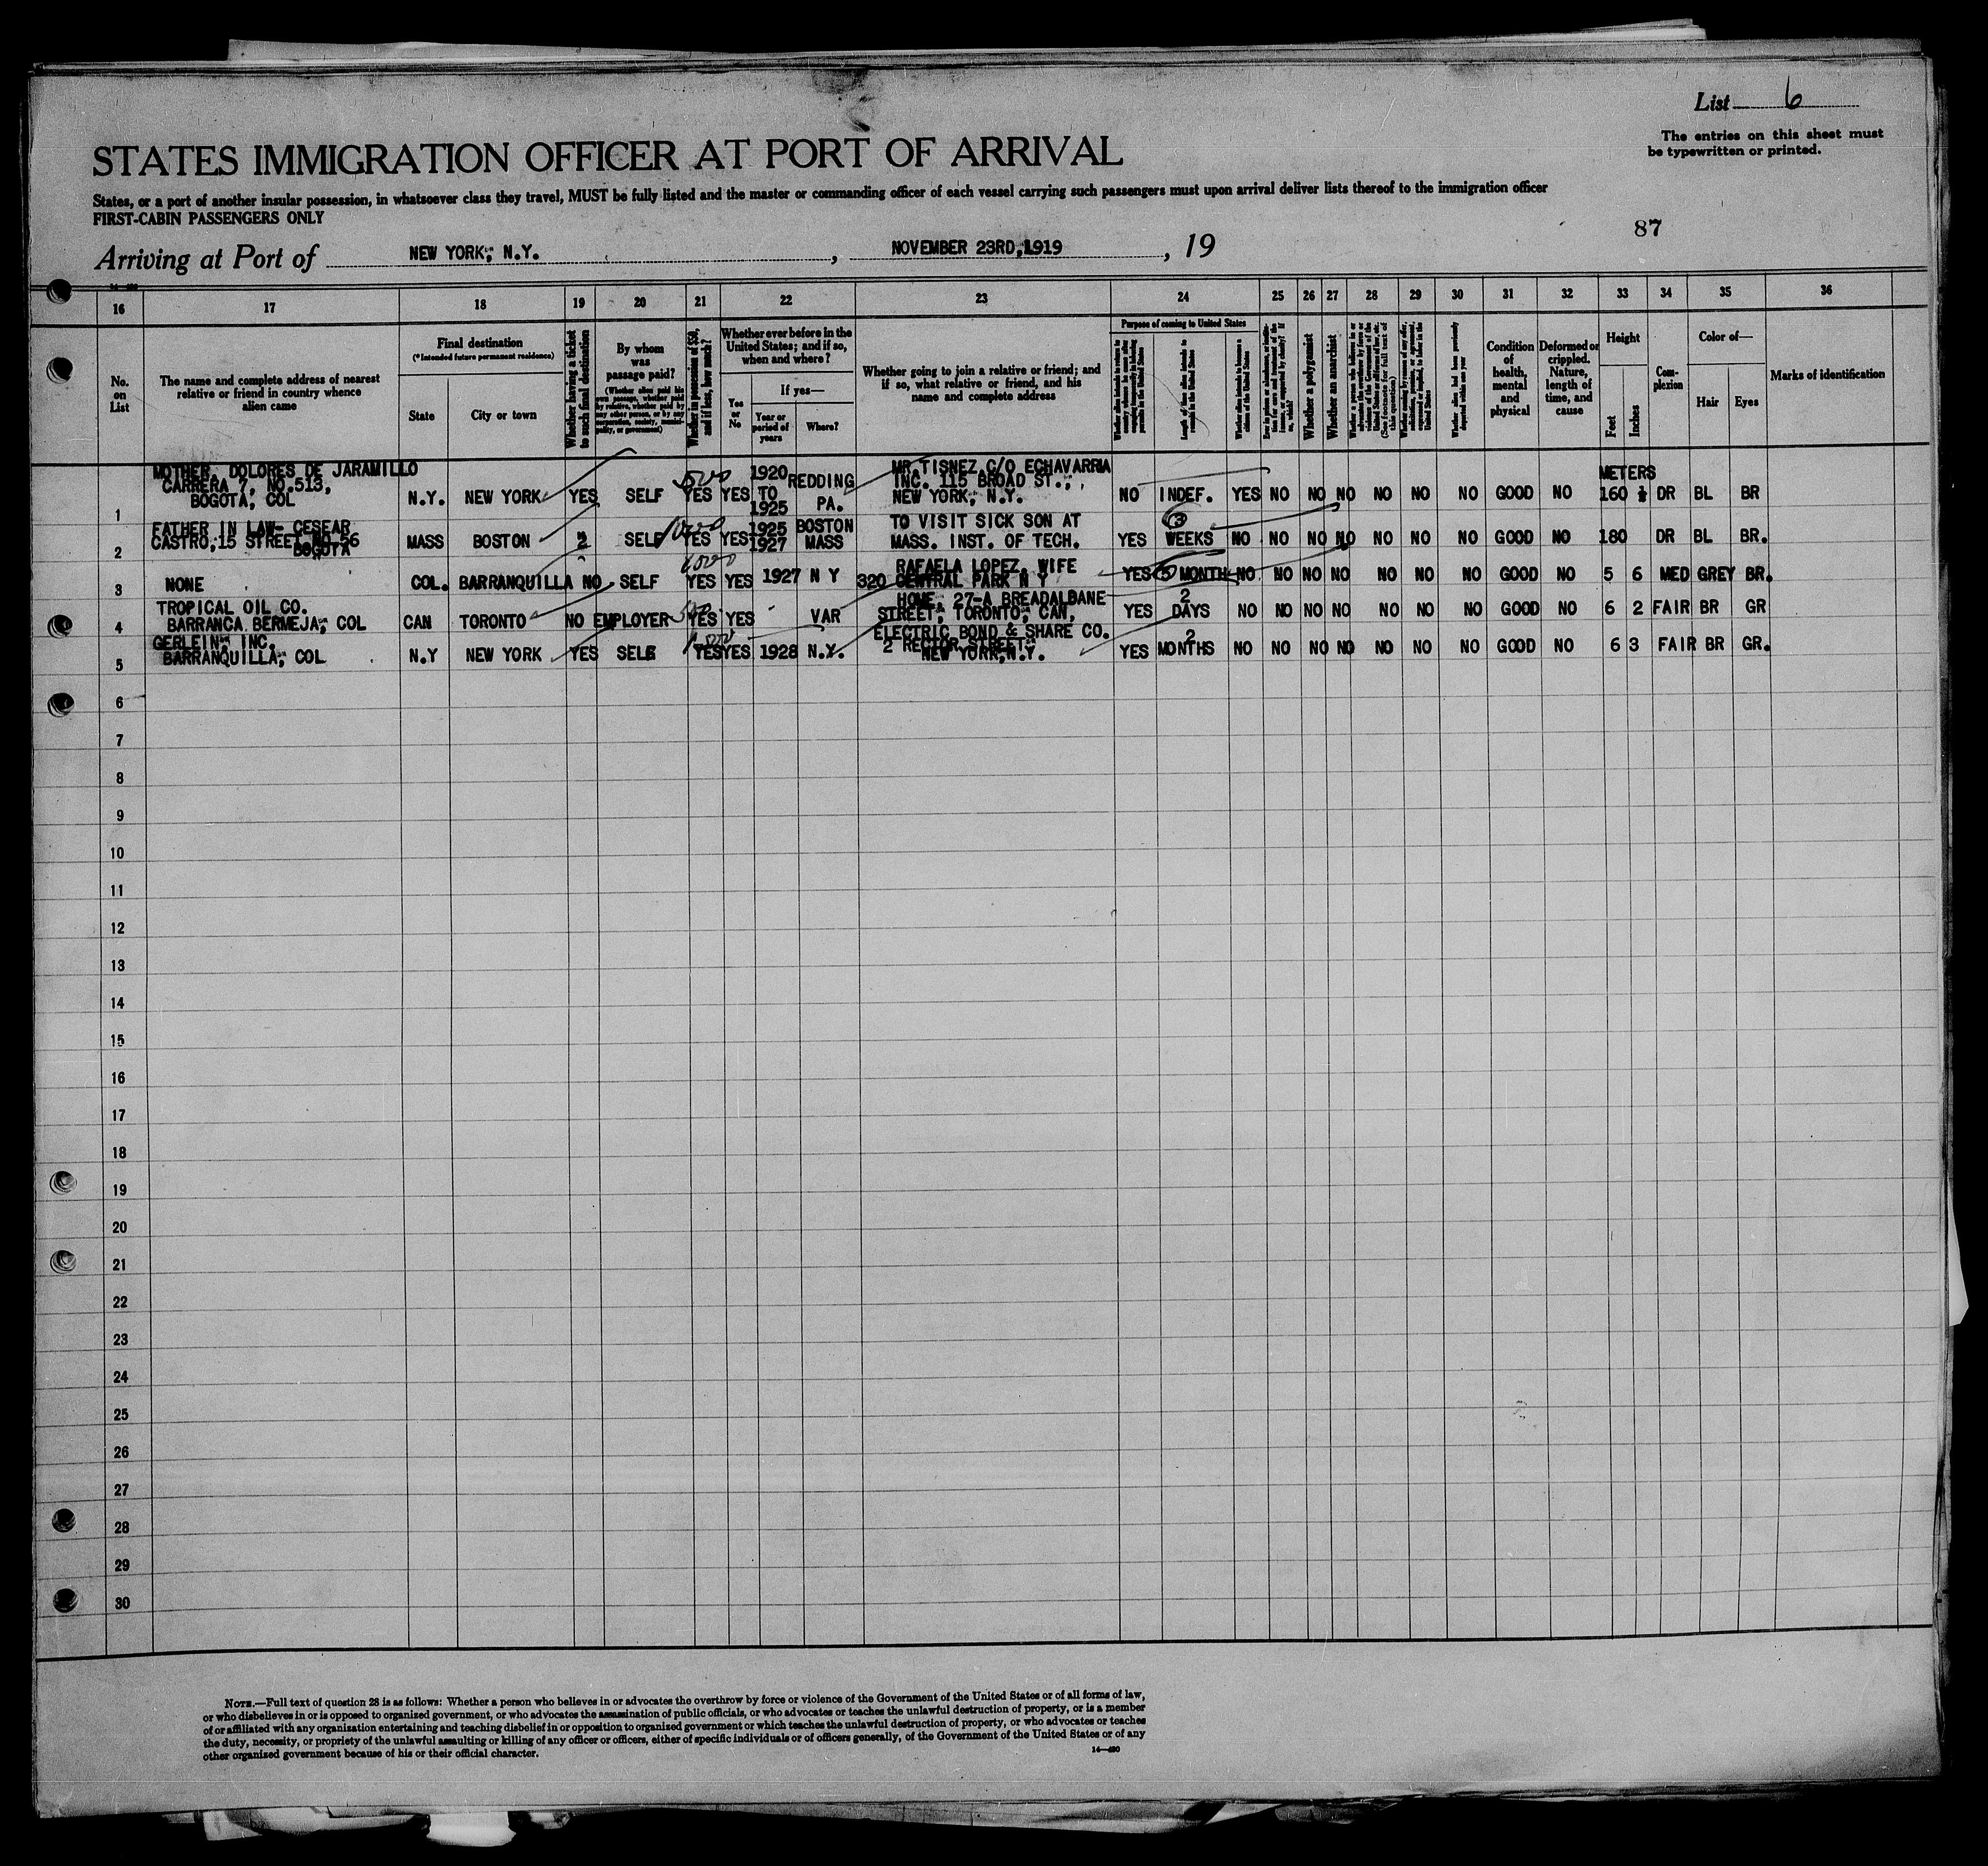 List 6
The entries on this sheet must
be typewritten or printed.
STATES IMMIGRATION OFFICER AT PORT OF ARRIVAL
States, or a port of another insular possession, in whatsoever class they travel, MUST be fully listed and the master or commanding officer of each vessel carrying such passengers must upon arrival deliver lists thereof to the immigration officer
FIRST-CABIN PASSENGERS ONLY
87
Arriving at Port of NEW YORK, N.Y. , NOVEMBER 23RD, 1919 , 19
16 17 18 19 20 21 22 23 24 25 26 27 28 29 30 31 32 33 34 35 36
No. on List
The name and complete address of nearest relative or friend in country whence alien came
Final destination
(*Intended future permanent residence)
State
City or town
Whether having a ticket to such final destination
By whom was passage paid?
(Whether alien paid his own passage, whether paid by relative, whether paid by any other person, or by any corporation, society, municipality, or government)
Whether in possession of $50, and if less, how much?
Whether ever before in the United States; and if so, when and where?
Yes or No
If yes—
Year or period of years
Where?
Whether going to join a relative or friend; and if so, what relative or friend, and his name and complete address
Purpose of coming to United States
Length of time alien intends to remain in the United States
Whether alien intends to become a citizen of the United States
Whether a polygamist
Whether an anarchist
Whether alien had been previously deported within one year
Condition of health, mental and physical
Deformed or crippled. Nature, length of time, and cause
Height
Feet
Inches
Complexion
Color of—
Hair
Eyes
Marks of identification
1 MOTHER, DOLORES DE JARAMILLO CARRERA 7, NO.513, BOGOTA, COL N.Y. NEW YORK YES SELF 500 YES YES 1920 TO 1925 REDDING PA. MR.TISNEZ C/O ECHAVARRIA INC. 115 BROAD ST., NEW YORK, N.Y. NO INDEF. YES NO NO NO NO NO NO GOOD NO METERS 160 ½ DR BL BR
2 FATHER IN LAW- CESEAR CASTRO, 15 STREET NO 56 BOGOTA MASS BOSTON 2 SELF 1000 YES YES 1925 1927 BOSTON MASS TO VISIT SICK SON AT MASS. INST. OF TECH. YES 3 WEEKS NO NO NO NO NO NO NO GOOD NO 180 DR BL BR.
3 NONE COL. BARRANQUILLA NO SELF YES YES 1927 N Y RAFAELA LOPEZ, WIFE 320 CENTRAL PARK N Y YES MONTH NO NO NO NO NO NO NO GOOD NO 5 6 MED GREY BR.
4 TROPICAL OIL CO. BARRANCA BERMEJA, COL CAN TORONTO NO EMPLOYER 500 YES YES VAR HOME 27-A BREADALBANE STREET, TORONTO, CAN, YES 2 DAYS NO NO NO NO NO NO NO GOOD NO 6 2 FAIR BR GR
5 GERLEIN, INC. BARRANQUILLA, COL N.Y NEW YORK YES SELF 1000 YES YES 1928 N.Y. ELECTRIC BOND & SHARE CO. 2 RECTOR STREET NEW YORK, N.Y. YES 2 MONTHS NO NO NO NO NO NO NO GOOD NO 6 3 FAIR BR GR.
6
7
8
9
10
11
12
13
14
15
16
17
18
19
20
21
22
23
24
25
26
27
28
29
30
NOTE.—Full text of question 28 is as follows: Whether a person who believes in or advocates the overthrow by force or violence of the Government of the United States or of all forms of law,
or who disbelieves in or is opposed to organized government, or who advocates the assassination of public officials, or who advocates or teaches the unlawful destruction of property, or is a member
of or affiliated with any organization entertaining and teaching disbelief in or opposition to organized government or which teaches the unlawful destruction of property, or who advocates or teaches
the duty, necessity, or propriety of the unlawful assaulting or killing of any officer or officers, either of specific individuals or of officers generally, of the Government of the United States or of any
other organized government because of his or their official character.
14—480